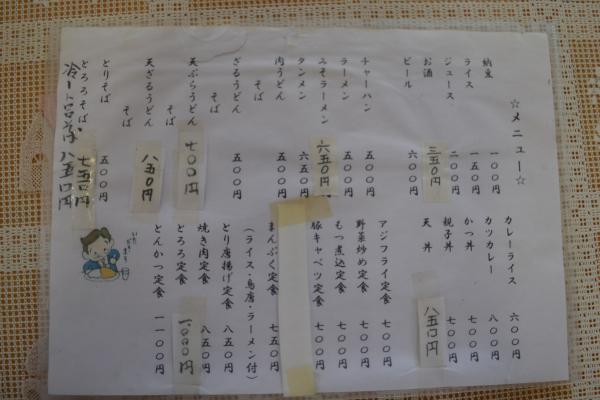 ☆メニュー☆
納豆 一〇〇円
ライス 一五〇円
ジュース 二〇〇円
お酒 三五〇円
ビール 六〇〇円
チャーハン 五〇〇円
ラーメン 五〇〇円
みそラーメン 六五〇円
タンメン 六五〇円
肉うどん 五〇〇円
そば
ざるうどん 五〇〇円
そば
天ぷらうどん 七〇〇円
そば
天ざるうどん 八五〇円
そば
とりそば 五〇〇円
とろろそば 七五〇円
八五〇円
カレーライス 六〇〇円
カツカレー 八〇〇円
かつ丼 七〇〇円
親子丼 七〇〇円
天丼 八五〇円
アジフライ定食 七〇〇円
野菜炒め定食 七〇〇円
もつ煮込定食 七〇〇円
豚キャベツ定食 七〇〇円
まんぷく定食 七五〇円
(ライス・鳥唐・ラーメン付)
とり唐揚げ定食 八五〇円
焼き肉定食 八五〇円
とろろ定食 一、〇〇〇円
とんかつ定食 一一〇〇円